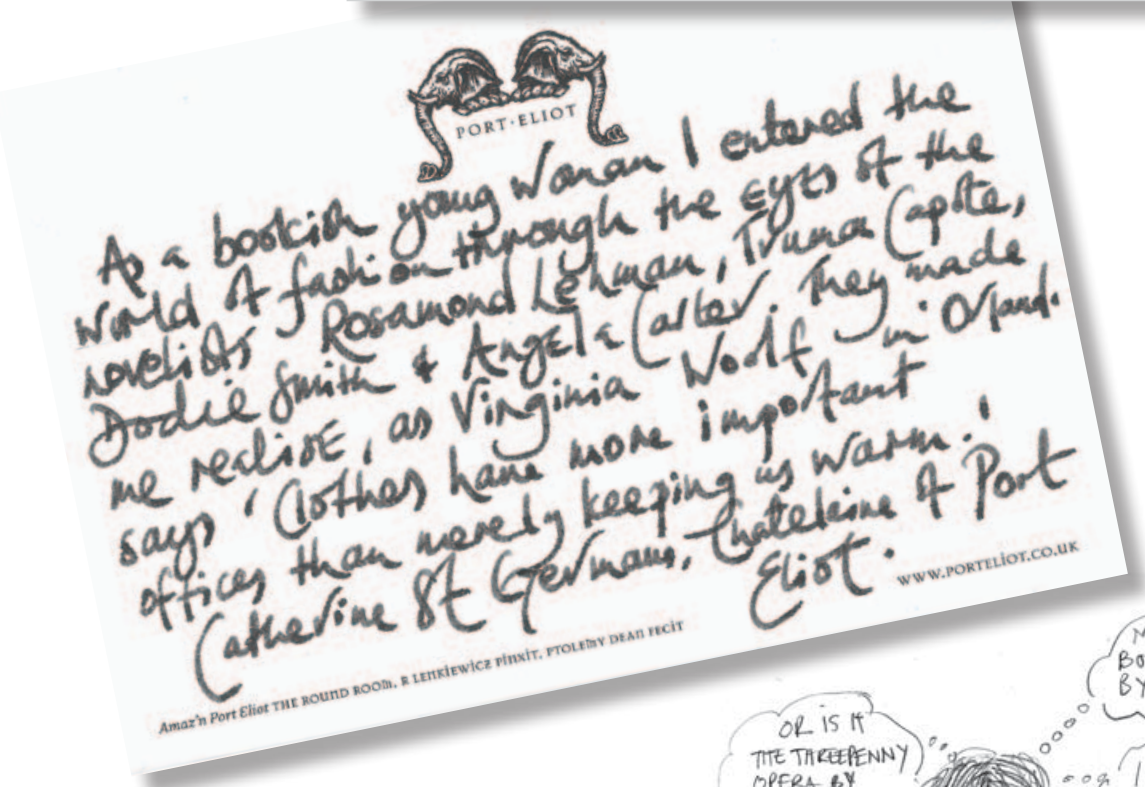 PORT·ELIOT
As a bookish young woman I entered the
world of fashion through the eyes of the
novelists Rosamond Lehman, Truman Capote,
Dodie Smith & Angela Carter. They made
me realise, as Virginia Woolf in 'Orlando
says 'Clothes have more important
offices than merely keeping us warm.'
Catherine St Germans, Chatelaine of Port
Eliot.
WWW.PORTELIOT.CO.UK
Amaz'n Port Eliot THE ROUND ROOM. R LENKIEWICZ PINXIT. PTOLEMY DEAN FECIT
OR IS IT
THE THREEPENNY
OPERA BY
BO
BY